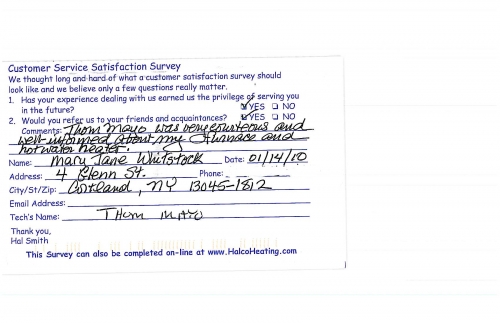 Customer Service Satisfaction Survey
We thought long and hard of what a customer satisfaction survey should
look like and we believe only a few questions really matter.
1. Has your experience dealing with us earned us the privilege of serving you
in the future? ☑ YES ☐ NO
2. Would you refer us to your friends and acquaintances? ☑ YES ☐ NO
Comments: Thom Mayo was very courteous and
well-informed about my furnace and
hot water heater.
Name: Mary Jane Whitstock Date: 01/14/10
Address: 4 Glenn St. Phone:
City/St/Zip: Cortland, NY 13045-1812
Email Address:
Tech's Name: Thom Mayo
Thank you,
Hal Smith
This Survey can also be completed on-line at www.HalcoHeating.com